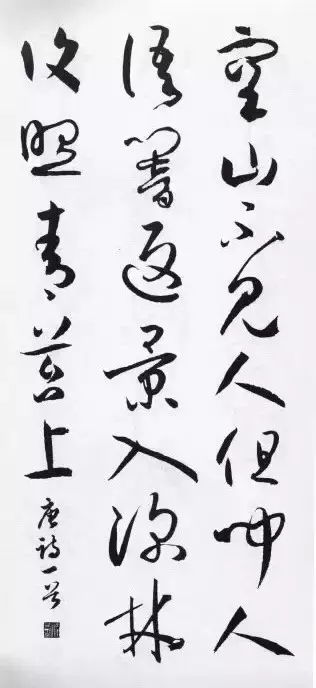 空山不见人但闻人
语响返景入深林
复照青苔上
唐诗一首